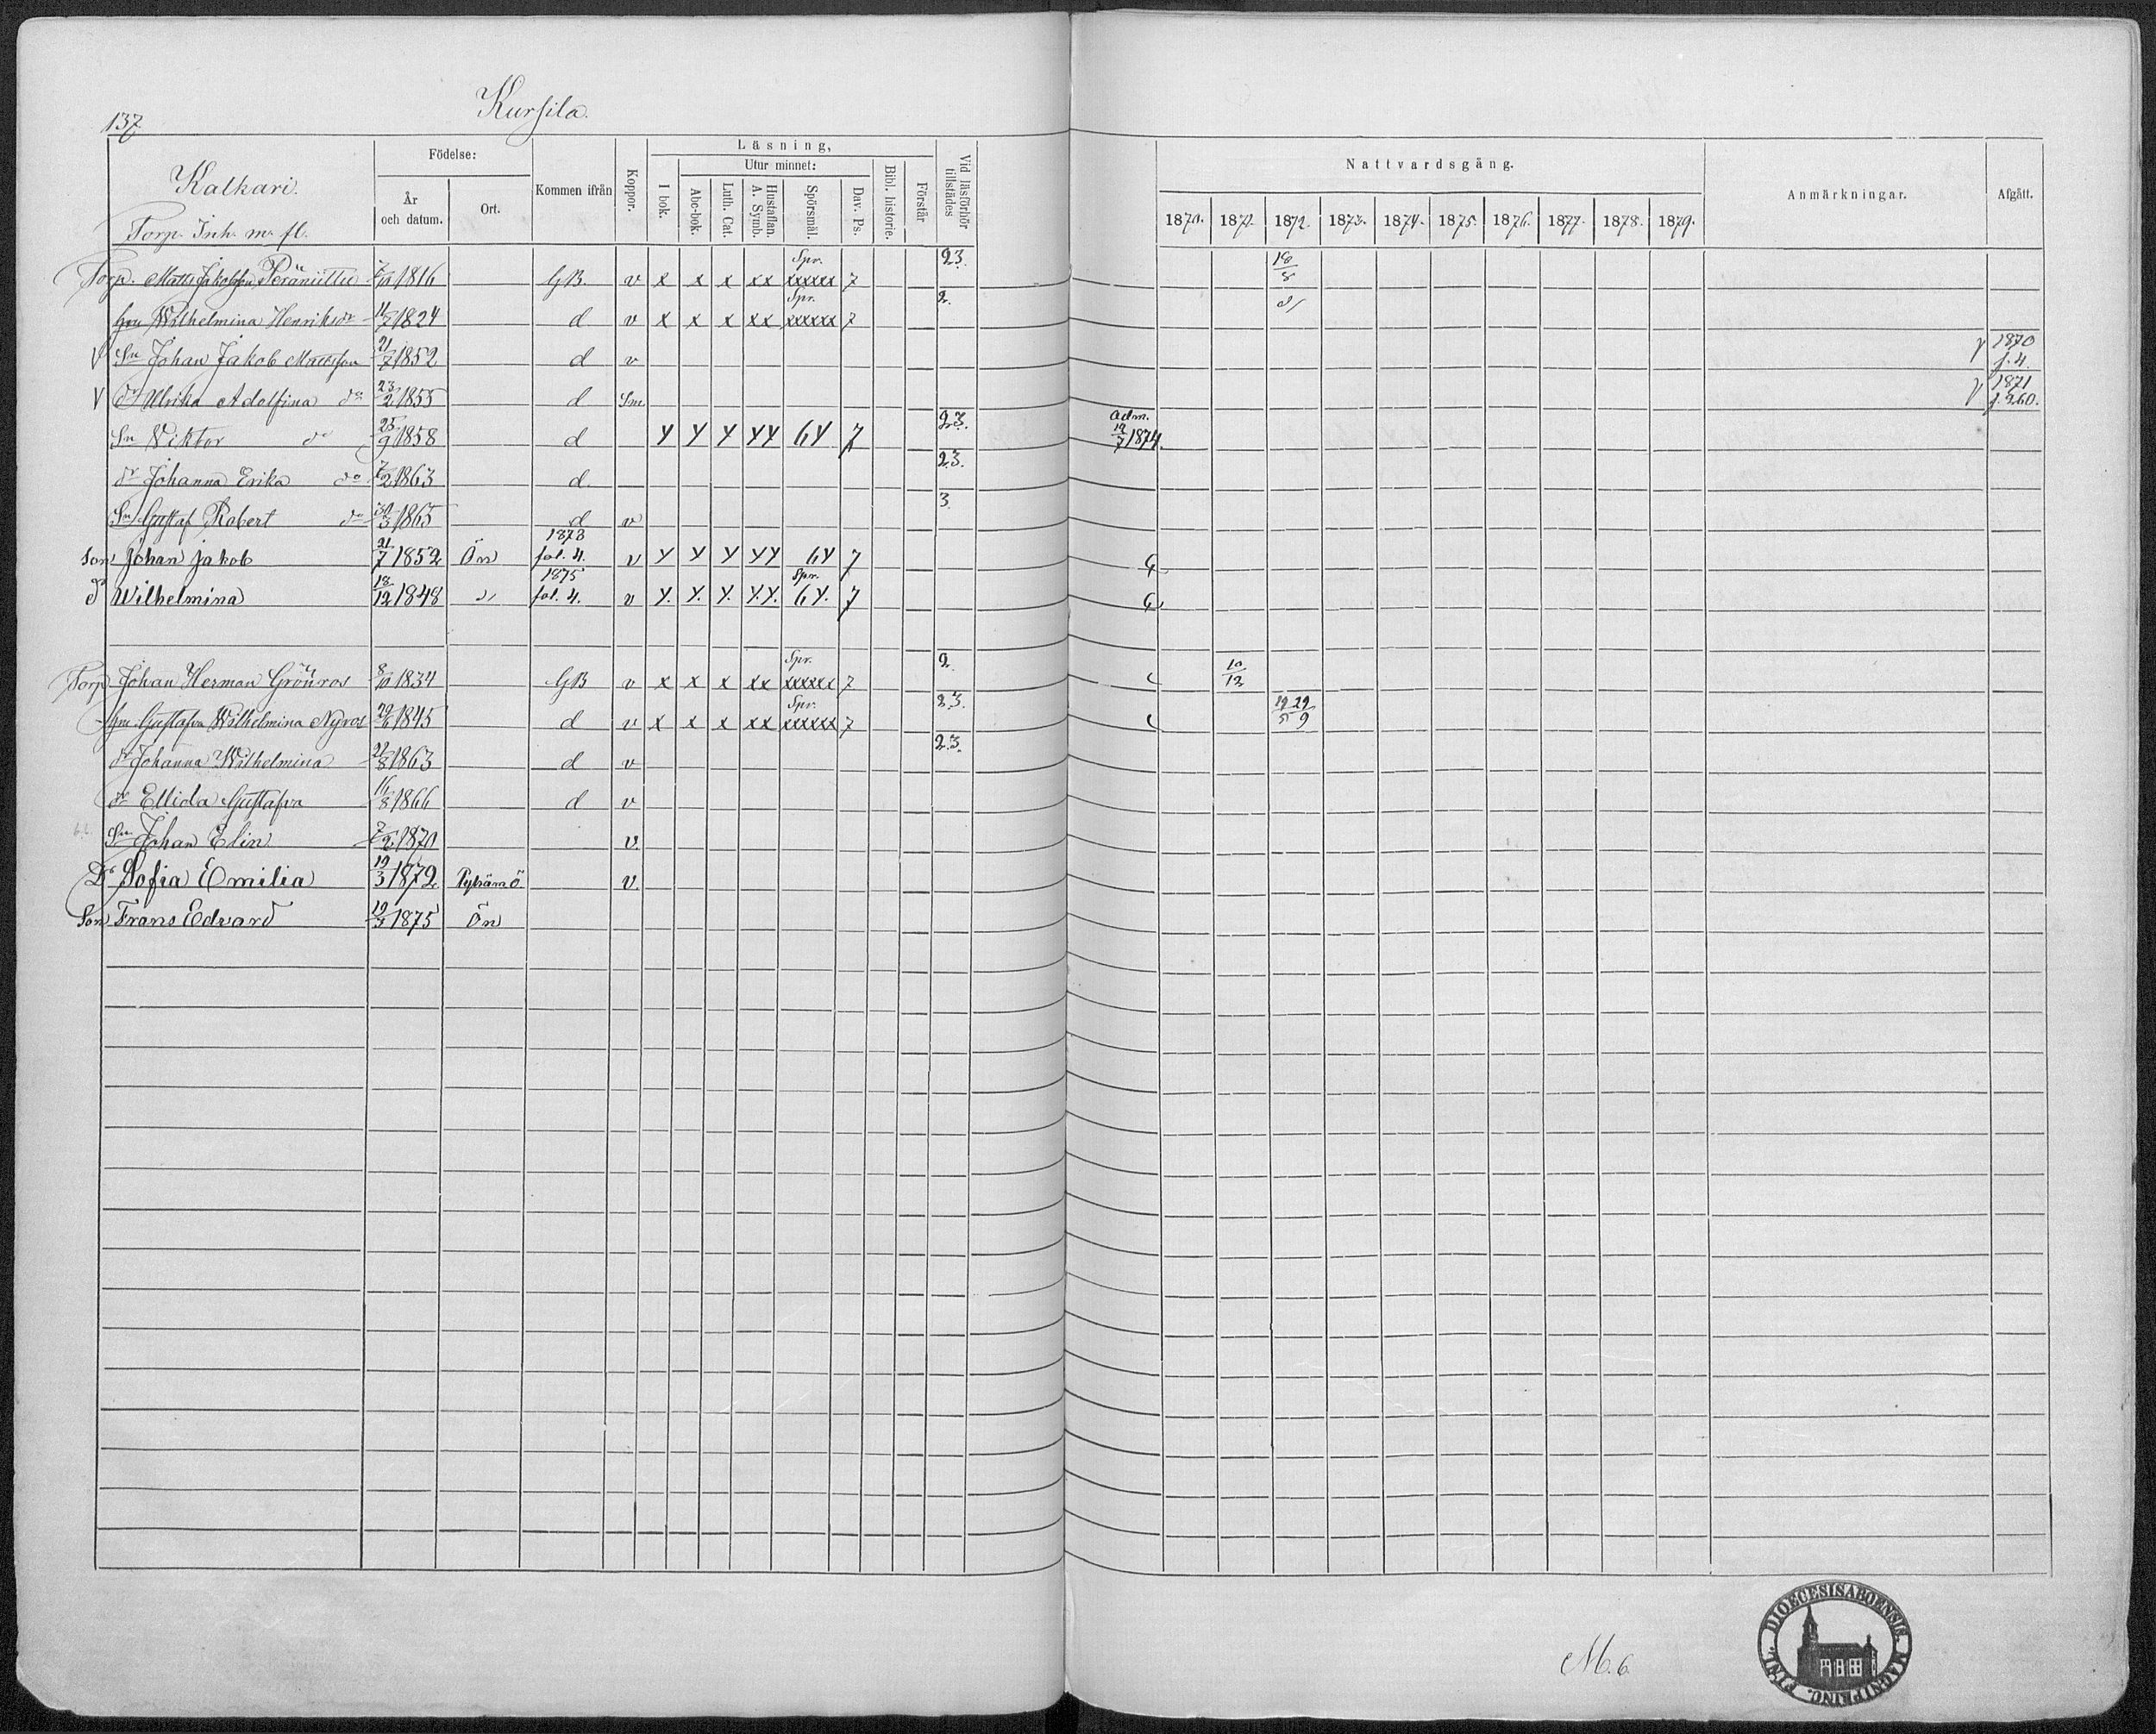 137
Kursila.
Kalkari.
Torp. Inh. m. fl.
Födelse:
År och datum.
Ort.
Kommen ifrån
Koppor.
Läsning,
I bok.
Utur minnet:
Abc-bok.
Luth. Cat.
Hustaflan. A. Symb.
Spörsmål.
Dav. Ps.
Bibl. historie.
Förstår
Vid läsförhör tillstädes
Nattvardsgång.
1870. 1871. 1872. 1873. 1874. 1875. 1876. 1877. 1878. 1879.
Anmärkningar.
Afgått.
Torp. Matts Jakobsson 7/10 1816 GB. v x x x xx Spr. xxxxxx 7 23. 18/8
Hru Wilhelmina Henriksdr 1824 d v x x x xx Spr. xxxxxx 7 2.
V Sn Johan Jakob Mattsson 21/7 1852 d v 1870 f. 4.
V dr Ulrika Adolfina do 23/2 1855 d Sm 1871 f. 260.
Sn Viktor do 25/9 1858 d Y Y Y YY 6Y 7 23. Adm. 12/7 1874.
dr Johanna Erika do 7/2 1863 d. 23.
Sn Gustaf Robert do 1865 d v 3.
Son Johan Jakob 21/7 1852 Ön 1873 fol. 4. v Y Y Y YY 6Y 7
dr Wilhelmina 18/12 1848 1875 fol. 4. v Y. Y. Y. Y.Y. Spr. 6Y. 7
Torp Johan Herman Grönros 8/10 1834 GB v x x x xx Spr. xxxxxx 7 2. 10/12
Hru Gustafva Wilhelmina Nyros 29/6 1845 d v x x x xx Spr. xxxxxx 7 23. 29/9
dr Johanna Wilhelmina 21/8 1863 d v 23.
dr Ellida Gustafva 16/8 1866 d v
Sn Johan Elin 7/2 1870 v.
Dr Sofia Emilia 19/3 1872 v.
Son Frans Edvard 1875 Ön
M. 6.
DIOECESIS ABOENSIS. MAGNI PRINC. FINL.